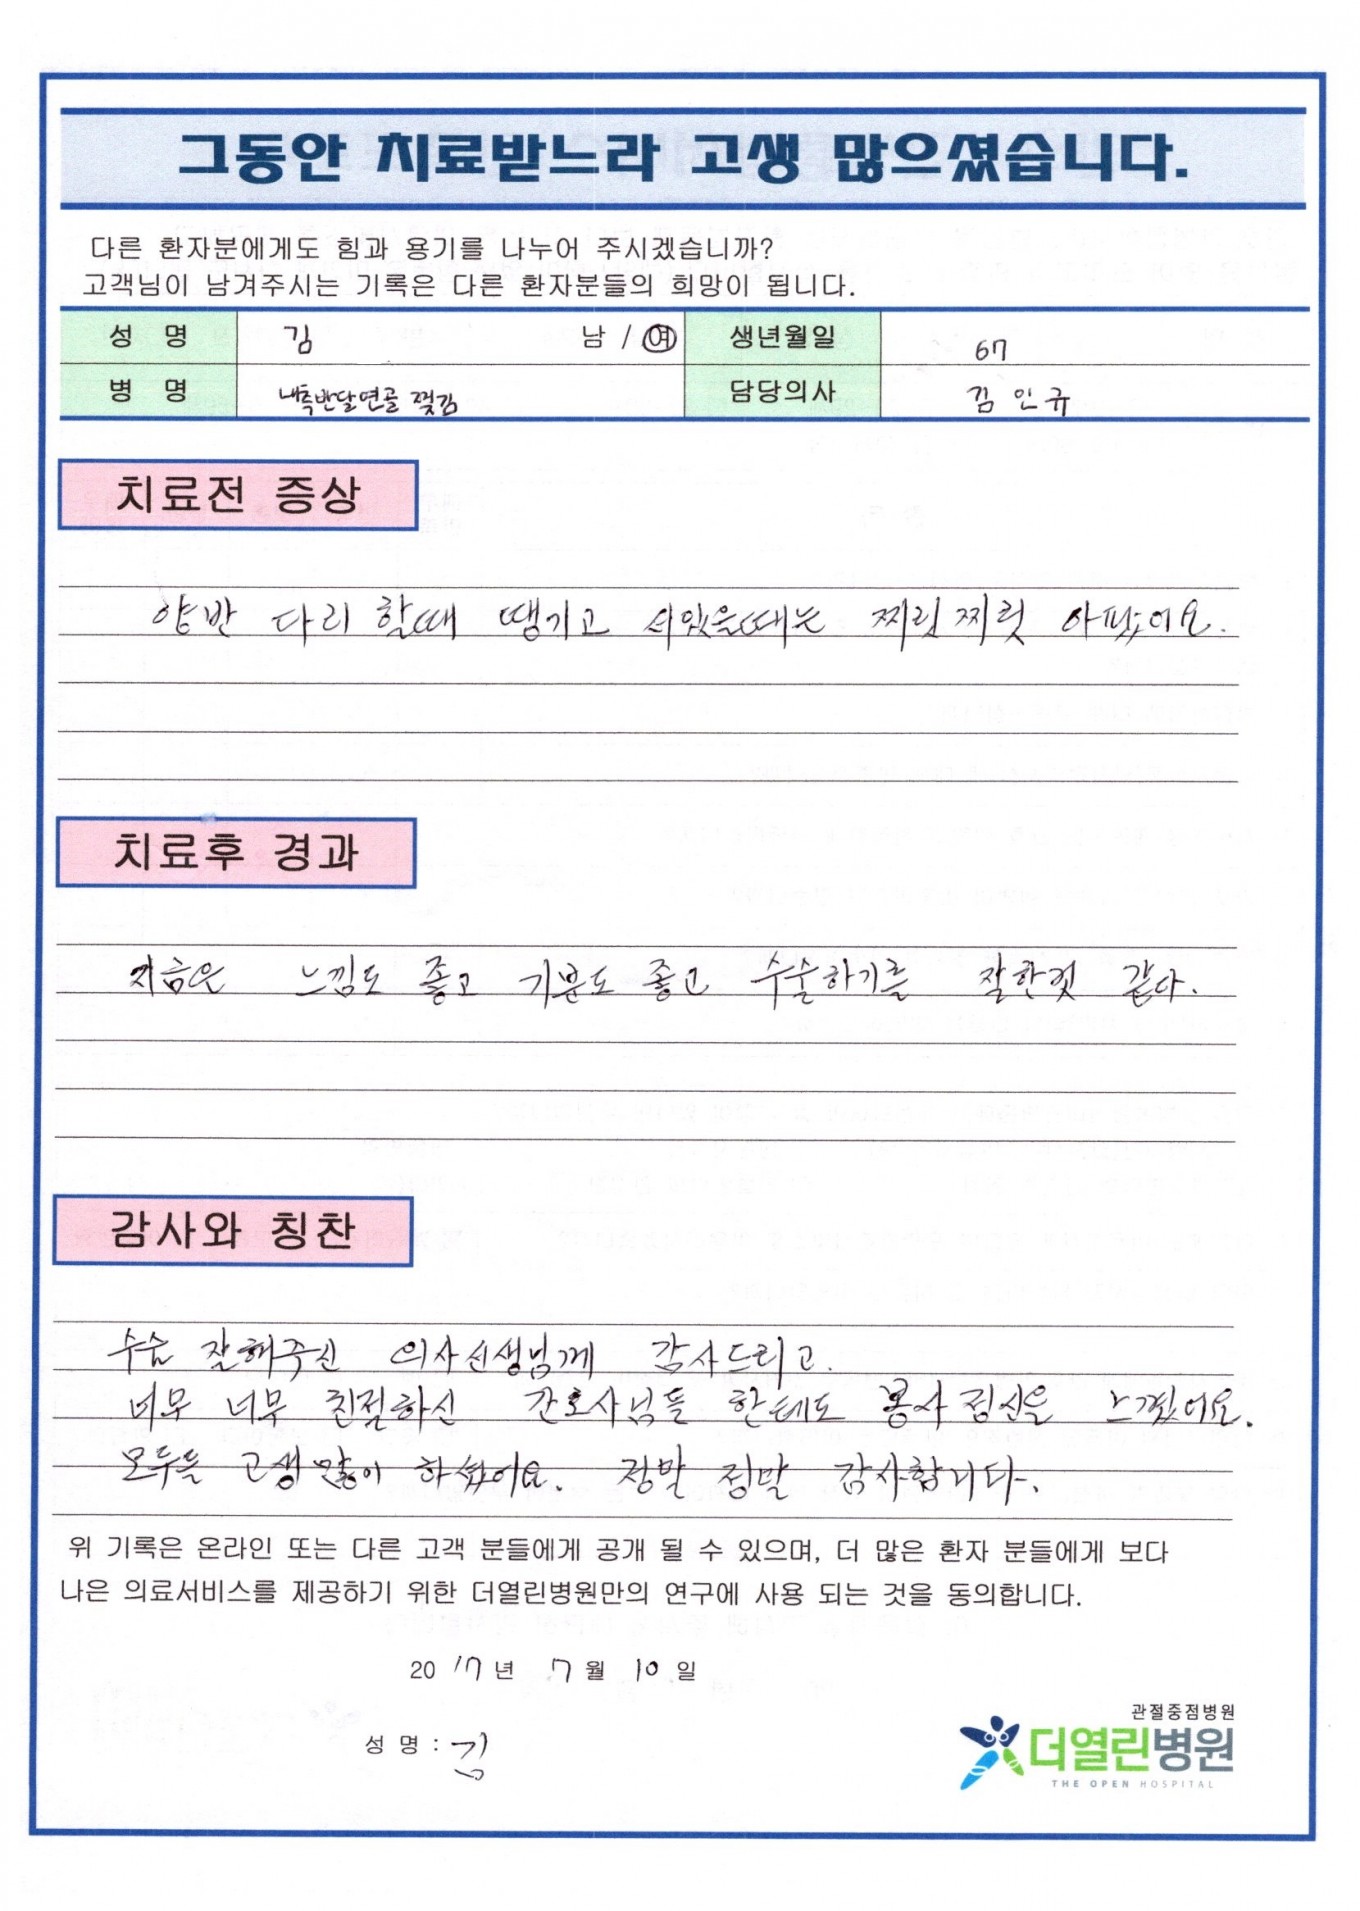 그동안 치료받느라 고생 많으셨습니다.
다른 환자분에게도 힘과 용기를 나누어 주시겠습니까?
고객님이 남겨주시는 기록은 다른 환자분들의 희망이 됩니다.
성 명 김 남 / 여 생년월일 67
병 명 내측반달연골 찢김 담당의사 김인규
치료전 증상
양반 다리 할때 땡기고 서있을때는 찌릿찌릿 아팠어요.
치료후 경과
지금은 느낌도 좋고 기분도 좋고 수술하기를 잘한것 같다.
감사와 칭찬
수술 잘해주신 의사선생님께 감사드리고.
너무 너무 친절하신 간호사님들 한테도 봉사정신을 느꼈어요.
모두들 고생많이 하셨어요. 정말 정말 감사합니다.
위 기록은 온라인 또는 다른 고객 분들에게 공개 될 수 있으며, 더 많은 환자 분들에게 보다
나은 의료서비스를 제공하기 위한 더열린병원만의 연구에 사용 되는 것을 동의합니다.
2017년 7월 10일
성 명 : 김
관절중점병원
더열린병원
THE OPEN HOSPITAL